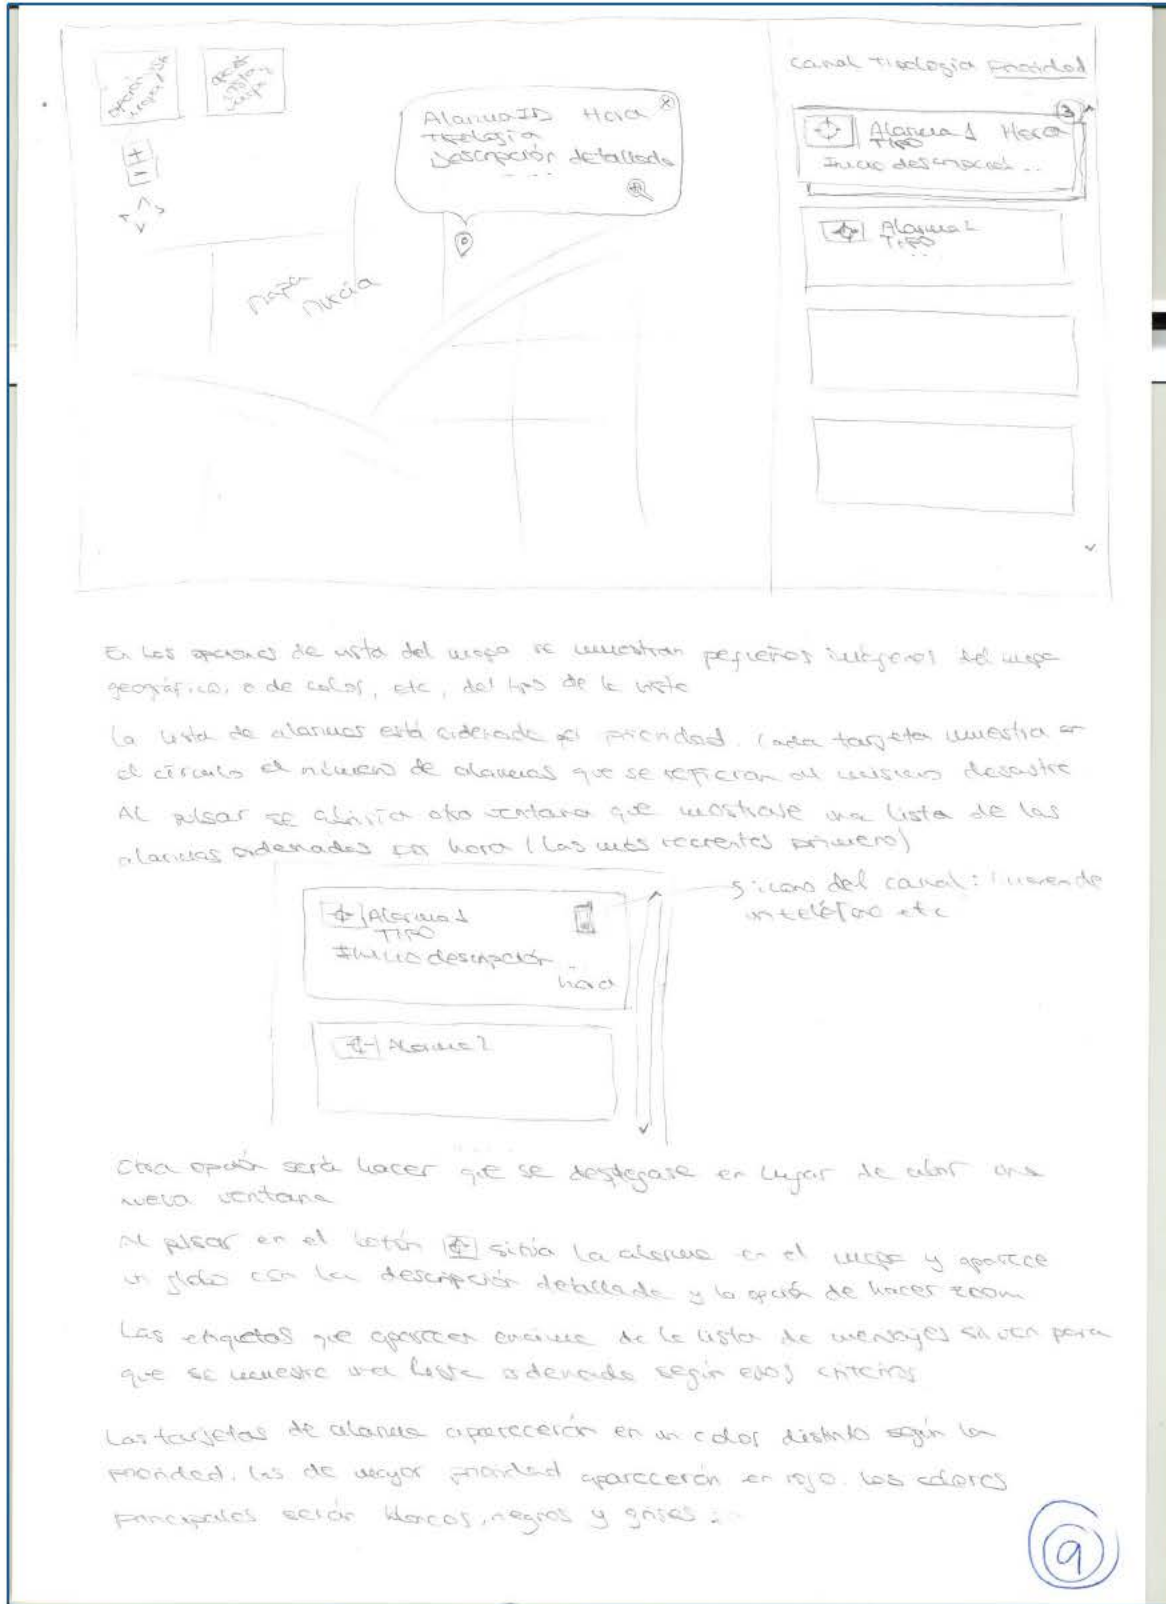 opción
opción
vista
mapa 2
+
-
Mapa
Murcia
Alarma ID Hora x
Tipología
Descripción detallada
...
Canal Tipología Prioridad
3
Alarma 1 Hora
TIPO
Inicio descripción ...
Alarma 2
TIPO
...
En las opciones de vista del mapa se muestran pequeñas imágenes del mapa
geográfico, o de color, etc, del tipo de la vista
La lista de alarmas está ordenada por prioridad. Cada tarjeta muestra en
el círculo el número de alarmas que se refieran al mismo desastre
Al pulsar se abriría otra ventana que mostrase una lista de las
alarmas ordenadas por hora (las más recientes primero)
Alarma 1
TIPO
Inicio descripción ...
hora
Alarma 2
icono del canal:
un teléfono etc
Otra opción sería hacer que se desplegase en lugar de abrir una
nueva ventana
Al pulsar en el botón sitúa la alarma en el mapa y aparece
un globo con la descripción detallada y la opción de hacer zoom
Las etiquetas que aparecen encima de la lista de mensajes sirven para
que se muestre una lista ordenada según esos criterios
Las tarjetas de alarma aparecerán en un color distinto según la
prioridad. Las de mayor prioridad aparecerán en rojo. Los colores
principales serán blancos, negros y grises.
9